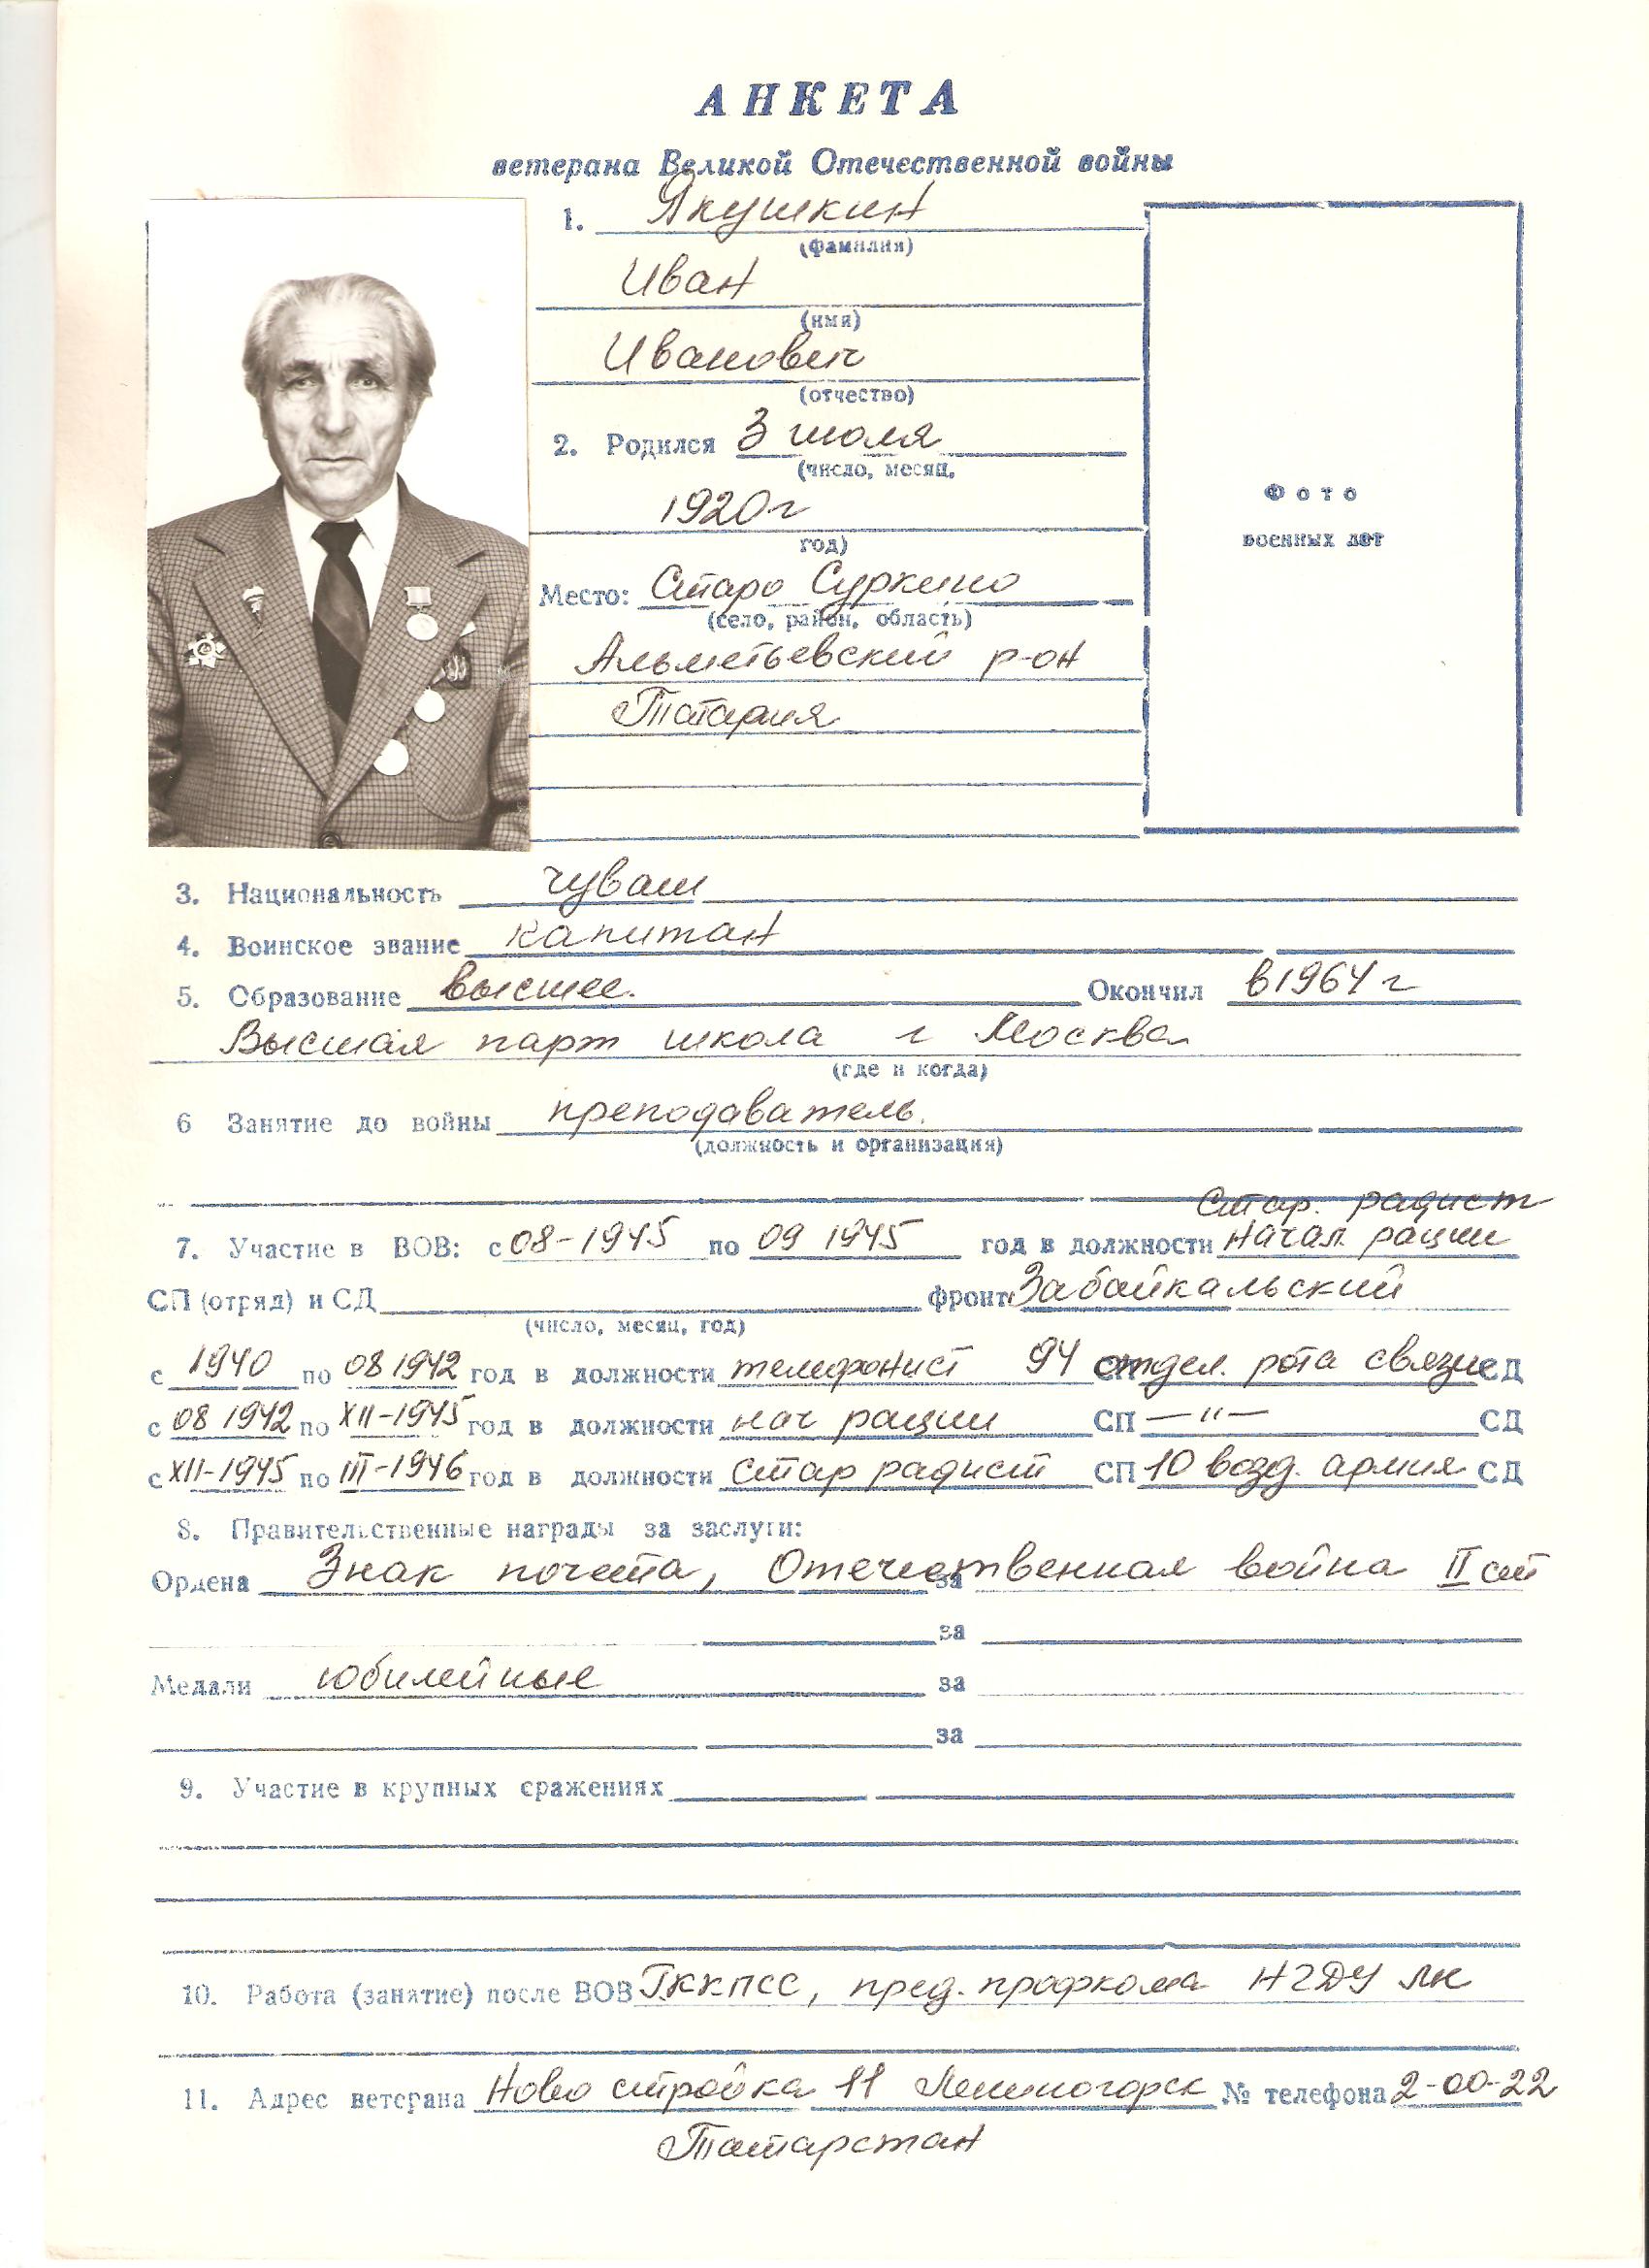 АНКЕТА
ветерана Великой Отечественной войны
1. Якушкин
(фамилия)
Иван
(имя)
Иванович
(отчество)
2. Родился 3 июля
(число, месяц,
1920 г
год)
Место: Старо Суркино
(село, район, область)
Альметьевский р-он
Татария
Фото
военных лет
3. Национальность чуваш
4. Воинское звание капитан
5. Образование высшее. Окончил в 1964 г
Высшая парт школа г Москва
(где и когда)
6 Занятие до войны преподаватель.
(должность и организация)
Стар. радист
7. Участие в ВОВ: с 08-1945 по 09 1945 год в должности Начал рации
СП (отряд) и СД фронт Забайкальский
(число, месяц, год)
с 1940 по 08 1942 год в должности телефонист 94 отдел. рота связи СД
с 08 1942 по XII-1945 год в должности нач рации СП —"— СД
с XII-1945 по III-1946 год в должности Стар радист СП 10 возд. армия СД
8. Правительственные награды за заслуги:
Ордена Знак почета, Отечественная война II ст
за
Медали юбилейные за
за
9. Участие в крупных сражениях
10. Работа (занятие) после ВОВ ГККПСС, пред. профкома НГДУ ЛН
11. Адрес ветерана Ново стройка 11 Лениногорск № телефона 2-00-22
Татарстан